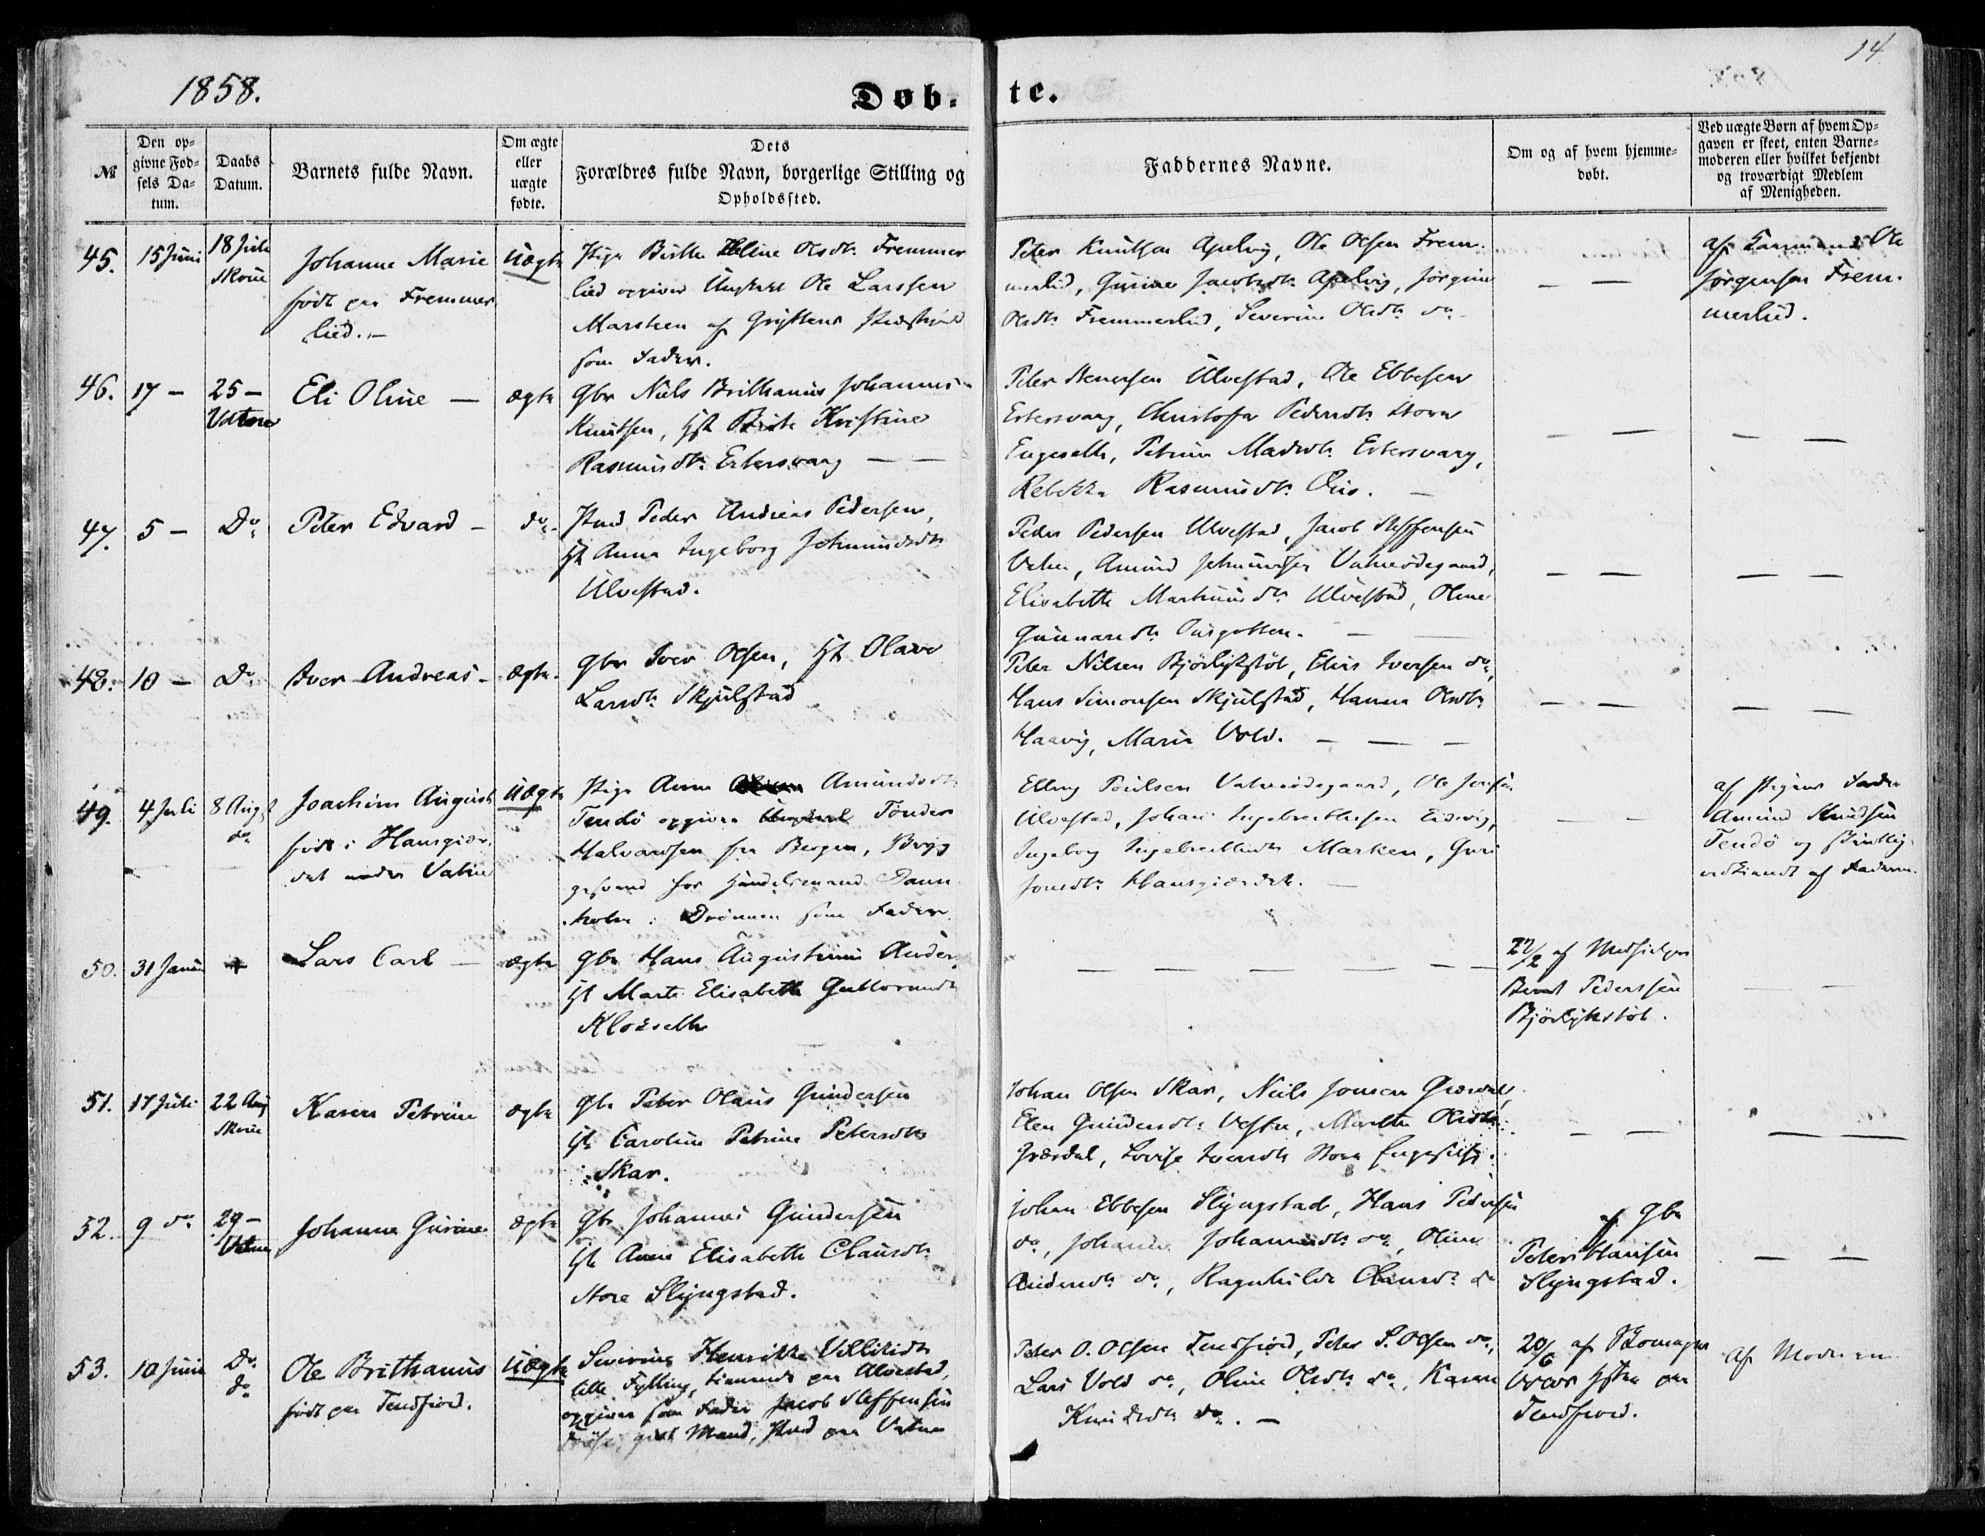 14
1858.
Døb- te.
№
Den op-
givne Fød-
sels Da-
tum.
Daabs
Datum.
Barnets fulde Navn.
Om ægte
eller
uægte
fødte.
Dets
Forældres fulde Navn, borgerlige Stilling og
Opholdssted.
Faddernes Navne.
Om og af hvem hjemme-
døbt.
Ved uægte Børn af hvem Op-
gaven er skeet, enten Barne-
moderen eller hvilket bekjendt
og troværdigt Medlem
af Menigheden.
45.
15 Juni
18 Juli
Skoue
Johanne Marie
født paa Fremmer
lied.-
Uægte
Pige Birthe Heline Olsdt. Fremmer
lied opgiver Ungkarl Ole Larssen
Marstein af Gryttens Præstegield
som Fader.
Peter Knutsen Apelvig, Ole Olsen Frem-
merlid, Gurine Jacobsdt. Apelvig, Jørgine
Olsdt. Fremmerlid, Severine Olsdt. do
— —
af Ole
Jørgensen Frem-
merlied.
46.
17 —
25 —
Vatne
Eli Oline —
ægte
Gbr Niels Brithanius Johannes
Knutsen, Hst Birte Kristine
Rasmusdt. Erbersvaag — —
Peter Stenersen Ulvestad, Ole Ebbesen
Erbersvaag, Christoffa Pedersdt. Store
Engeseth, Petrine Madsdt. Erbersvaag,
Rebekka Rasmusdt. —
— —
— —
47.
5 —
Do
Peter Edvard —
do.
Peder Andreas Pedersen,
Hst Anna Ingeborg Jetmundsdt.
Ulvestad.
Peder Pedersen Ulvestad, Jacob Steffensen
Vatne, Amund Jetmundsen Vatneødegaard,
Elisabeth Martinusdt. Ulvestad, Oline
Gunnarsdt. — —
— —
— —
48.
10 —
Do
Iver Andreas —
ægte.
Gbr Iver Olsen, Hst Olave
Larsdt. Skjulstad
Peter Nilsen Bjørlykstøl, Elias Iversen do,
Hans Simonsen Skjulstad, Hanna Olsdt.
Haavig, Marie Vold. — — —
— —
— —
49.
4 Juli
8 Augst
do
Joachim August
født i Hansgiær-
det under Vatne
Uægte
Pige Anne Amundsdt.
Tendø opgiver Ungkarl Tønder
Halvardsen fra Bergen,
for Handelsmand Dann-
i Drønnen som Fader.
Elling Poulsen Vatneødegaard, Ole Jensen
Ulvestad, Johan Ingebrethsen Eidsvig,
Ingeborg Ingebrethsdt. Marken, Guri
Jonsdt. Hansgiærdet. —
— —
af Pigens Fader
Amund Knudsen
Tendø og skriftlig
vedkiendt af Faderen.
50.
31 Januar
+
Lars Carl —
ægte
Gbr Hans Augustinus Ander
Hst Marte Elisabeth Guttormsdt.
Kloxseth
— — — — — —
22/2 af Medhielper
Bernt Pedersen
Bjørlykstøl.
— —
51.
17 Juli
22 Aug
Skoue
Karen Petrine
ægte
Gbr Peter Olaus Gundersen
Hst Caroline Petrine Petersdt.
Skar.
Johan Olsen Skar, Niels Jonsen Grærdal,
Elen Gundersdt. Vestre, Marthe Olsdt.
Grærdal, Lovise Iversdt. Store Engeseth.
— —
— —
52.
9 do
29 —
Vatne
Johanne Gurine.
ægte
Gbr Johannes Gundersen
Hst Anne Elisabeth Clausdt.
Store Slyngstad.
Johan Ebbesen Slyngstad, Hans Pedersen
do, Johanne Johannesdt. do, Oline
Andersdt. do, Ragnhilde Clausdt. do
af Gbr
Peter Hansen
Slyngstad.
— —
53.
10 Juni
Do.
do
Ole Brithanius
født paa Tendfiord.
Uægte
Severine Henrikke Villiksdt.
lille Fylling, tienende paa Ulvestad,
opgiver som Fader Jacob Steffensen
gift Mand, paa Vatne
Peter O. Olsen Tendfiord, Peter S. Olsen do,
Lars Vold do, Oline Olsdt. do, Karen
Knudsdt. do. —
20/6 af
paa
Tendfiord.
Af Moderen